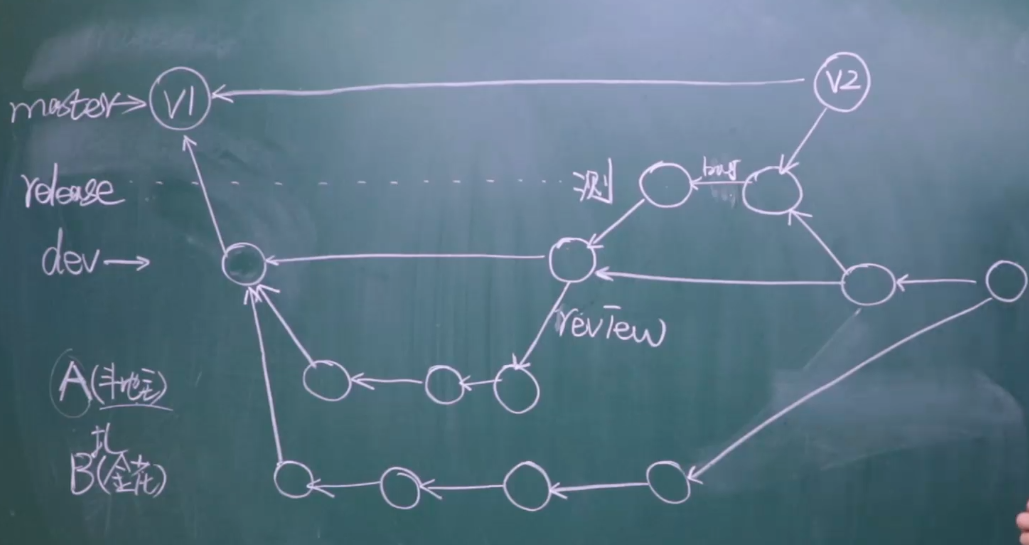 master
V1
V2
release
测
bug
dev
review
A(斗地主)
B(扎金花)